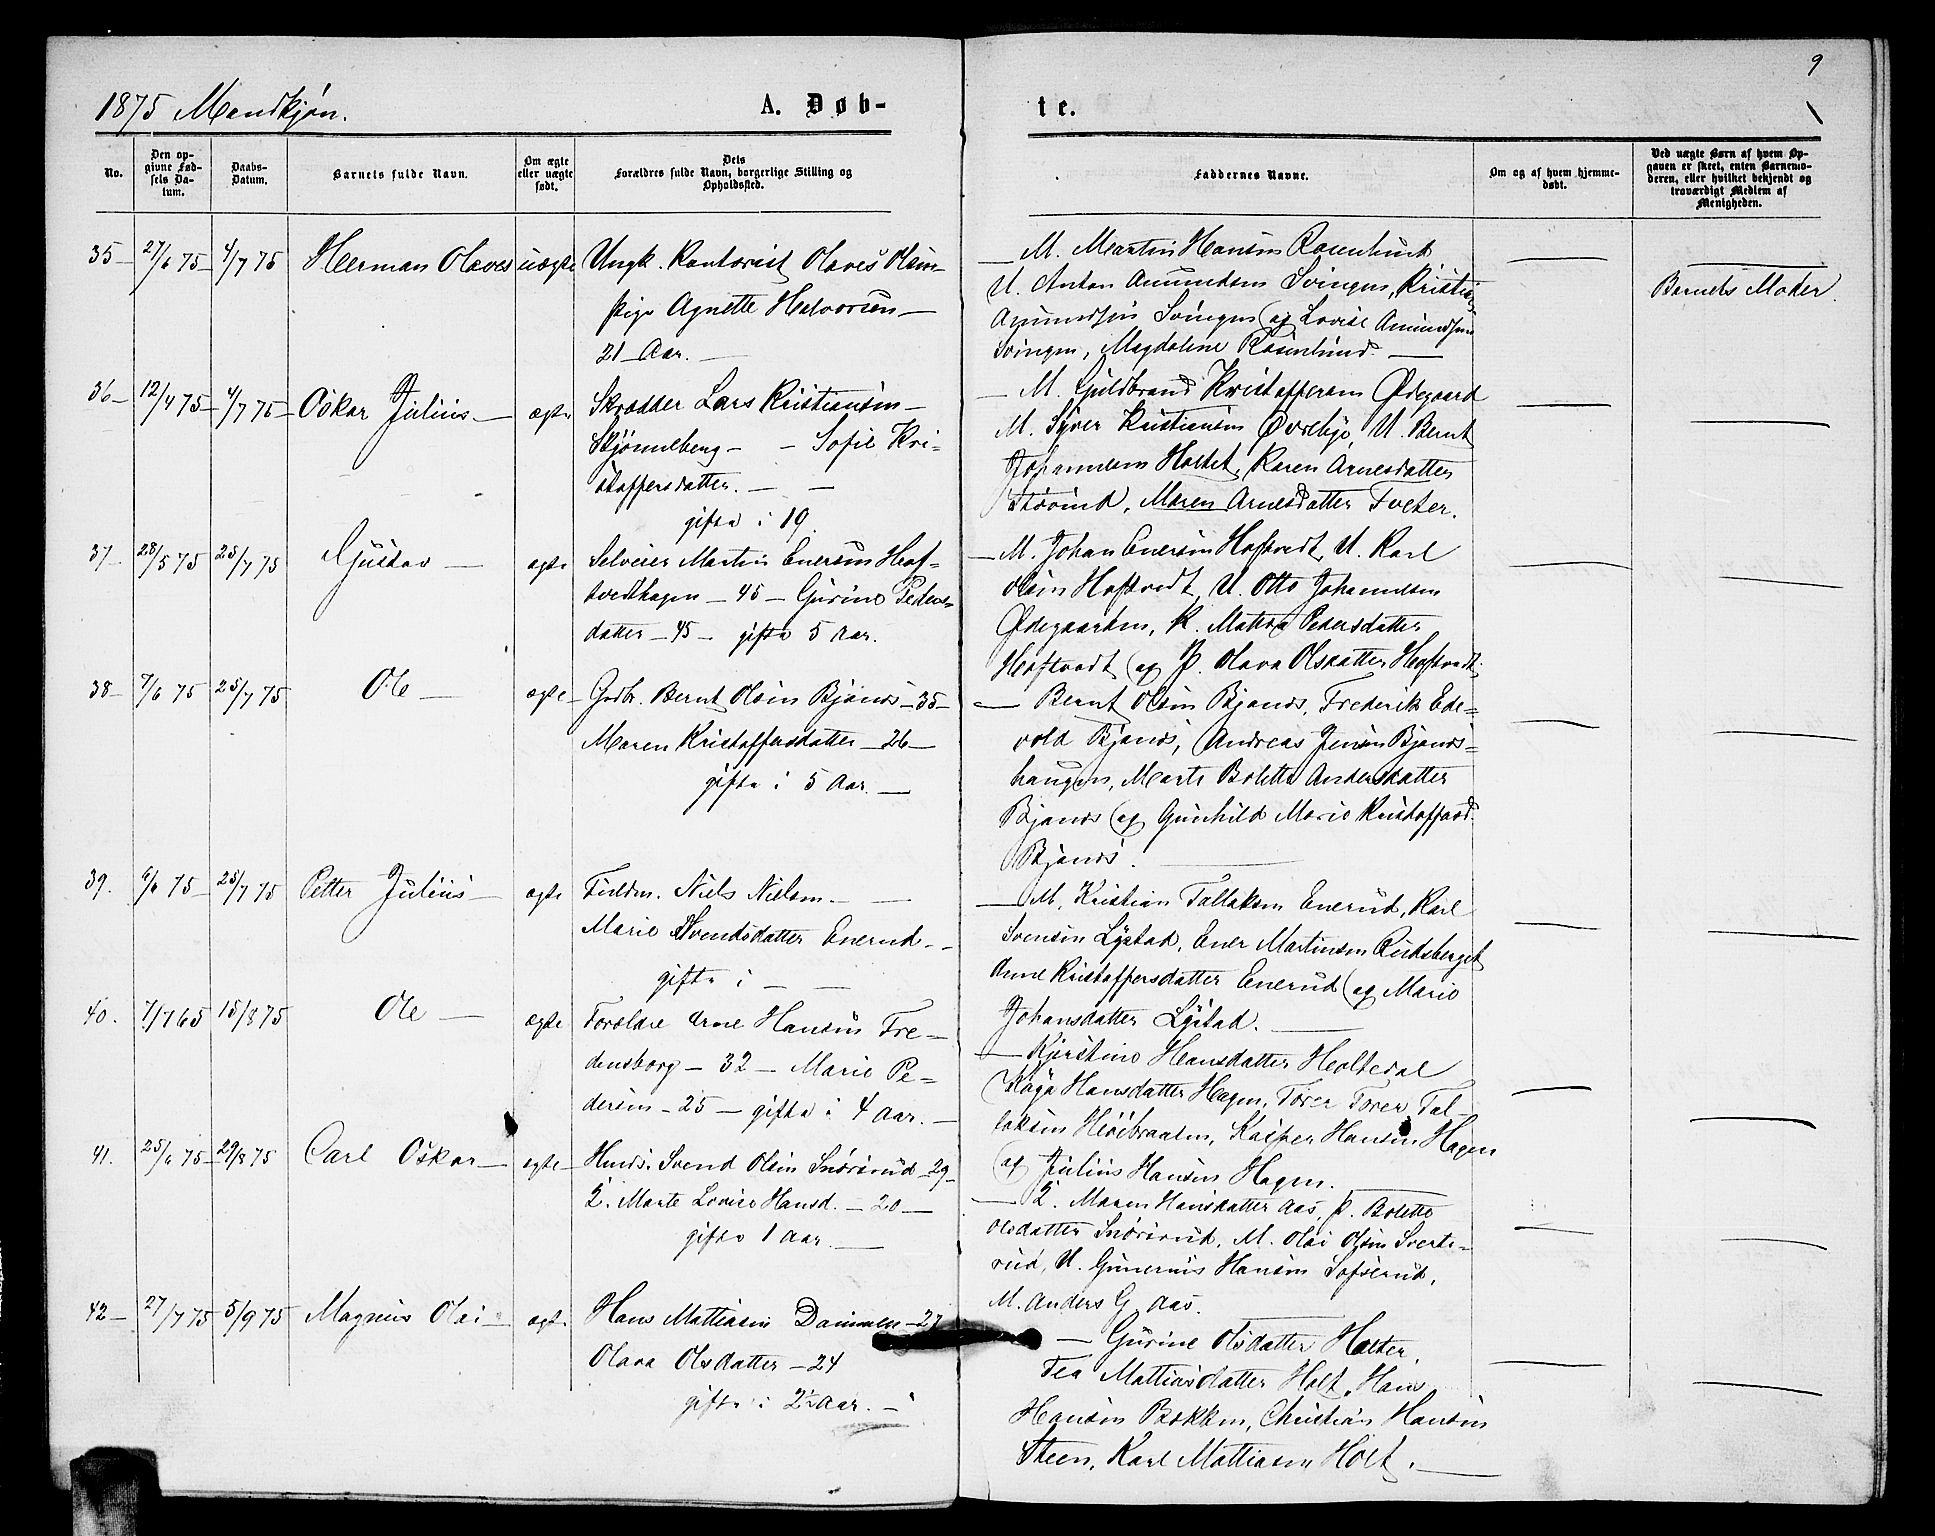 9
1875 Mandkjøn.
A. Døb-
te.
No.
Den op-
givne Fød-
sels Da-
tum.
Daabs-
Datum.
Barnets fulde Navn.
Om ægte
eller uægte
født.
Dets
Forældres fulde Navn, borgerlige Stilling og
Opholdssted.
Faddernes Navne.
Om og af hvem hjemme-
døbt.
Ved uægte Børn af hvem Op-
gaven er skeet, enten Barnemo-
deren, eller hvilket bekjendt og
troværdigt Medlem af
Menigheden.
35 — 27/6 75 — 4/7 75 Herman Olaves uægte
Ungk. Kontorist Olaves Olsen
Pige Agnette Halvorsen —
21 Aar. —
— M. Martin Hansen Rosenlund
U. Anton Amundsen Svingen, Kristian
Amundsen Svingen og Lovise Amundsen
Svingen, Magdalene Rosenlund. —
Barnets Moder.
36 — 12/4 75 — 4/7 75 — Oskar Julius — ægte
Skrædder Lars Kristiansen —
Skjønneberg — — Sofie Kri-
stoffersdatter. — —
gifte i 19.
— M. Guldbrand Kristoffersen Ødegaard
M. Syver Kristiansen Øvrebye, U. Bernt
Johannesen Holtet, Karen Arnesdatter
Maren Arnesdatter Tveter.
37 — 28/5 75 — 25/7 75 Gustav — ægte
Selveier Martin Enersen Haf-
tvedthagen — 45 — Gurine Peders-
datter — 45 — gifte 5 Aar.
— M. Johan Enersen Haftvedt, U. Karl
Olsen Haftvedt, U. Otto Johannesen
Ødegaarden, K. Mathea Pedersdatter
Haftvedt og P. Olava Olsdatter Haftvedt.
38 — 7/6 75 — 25/7 75 Ole — ægte —
Grdbr. Bernt Olsen Bjanes — 35 —
Maren Kristoffersdatter — 26 —
gifte i 5 Aar. —
— Bernt Olsen Bjanes, Frederik Ede-
vold Bjanes, Andreas Jensen Bjanes-
haugen, Marte Bolette Andersdatter
Bjanes og Gunhild Marie Kristoffersd.
Bjanes.
39. 6/6 75 — 25/7 75 Petter Julius — ægte
Niels Nielsen — —
Marie Svendsdatter Enerud —
gifte i — —
— M. Kristian Tallaksen Enerud, Karl
Svensen Lystad, Ener Martinsen Rudsberget
Anne Kristoffersdatter Enerud og Marie
Johansdatter Lystad. —
40. 7/7 65 — 15/8 75 Ole — ægte
Forældre Arne Hansen Fre-
densborg — 32 — Marie Pe-
dersen — 25 — gifte i 4 Aar. —
— Kjerstine Hansdatter Holtedal
Kaja Hansdatter Hagen, Torer Torer Tal-
laksen Høibraaten, Kasper Hansen Hagen
og Julius Hansen Hagen.
41. 25/6 75 — 29/8 75 Carl Oskar — ægte —
Husm. Svend Olsen Snørsrud — 29 —
K. Marte Lovise Hansd. — 20 —
gifte 1 Aar. —
— K. Maren Hansdatter Aas, P. Bolette
Olsdatter Snørsrud, M. Olai Olsen Sverts-
rud, U. Gunerius Hansen
M. Anders G. Aas.
42 — 27/7 75 5/9 75 Magnus Olai — ægte
Hans Mathiasen Dammen — 27
Olava Olsdatter — 24
gifte i 2½ Aar. —
— Gurine Olsdatter Holter,
Tea Mathiasdatter Holt, Hans
Hansen Bakken, Christian Hansen
Steen, Karl Mathiasen Holt. —